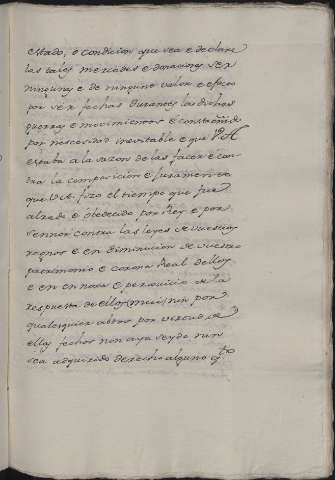 estado, o condicion que sea e declare
las tales mercedes e donaciones ser
ningunas e de ningune valor e efeto
por ser fechas durantes las dichas
guerras e movimientos e constañido
por nescesidad inevitable e que V. A.
estaba a la sazon de las facer e con
tra la composicion e juramento
que V. A. fizo el tiempo que fue
alzado e obedecido por Rey e por
sennor contra las leyes de vuestros
regnos e en diminucion de vuestro
patrimonio e corona Real dellos
e en en e perjuicio de la
respuesta de ellos nin por
qualesquier abtos por virtud de
ellos fechos non aya seydo nin
sea adquirido derecho alguno